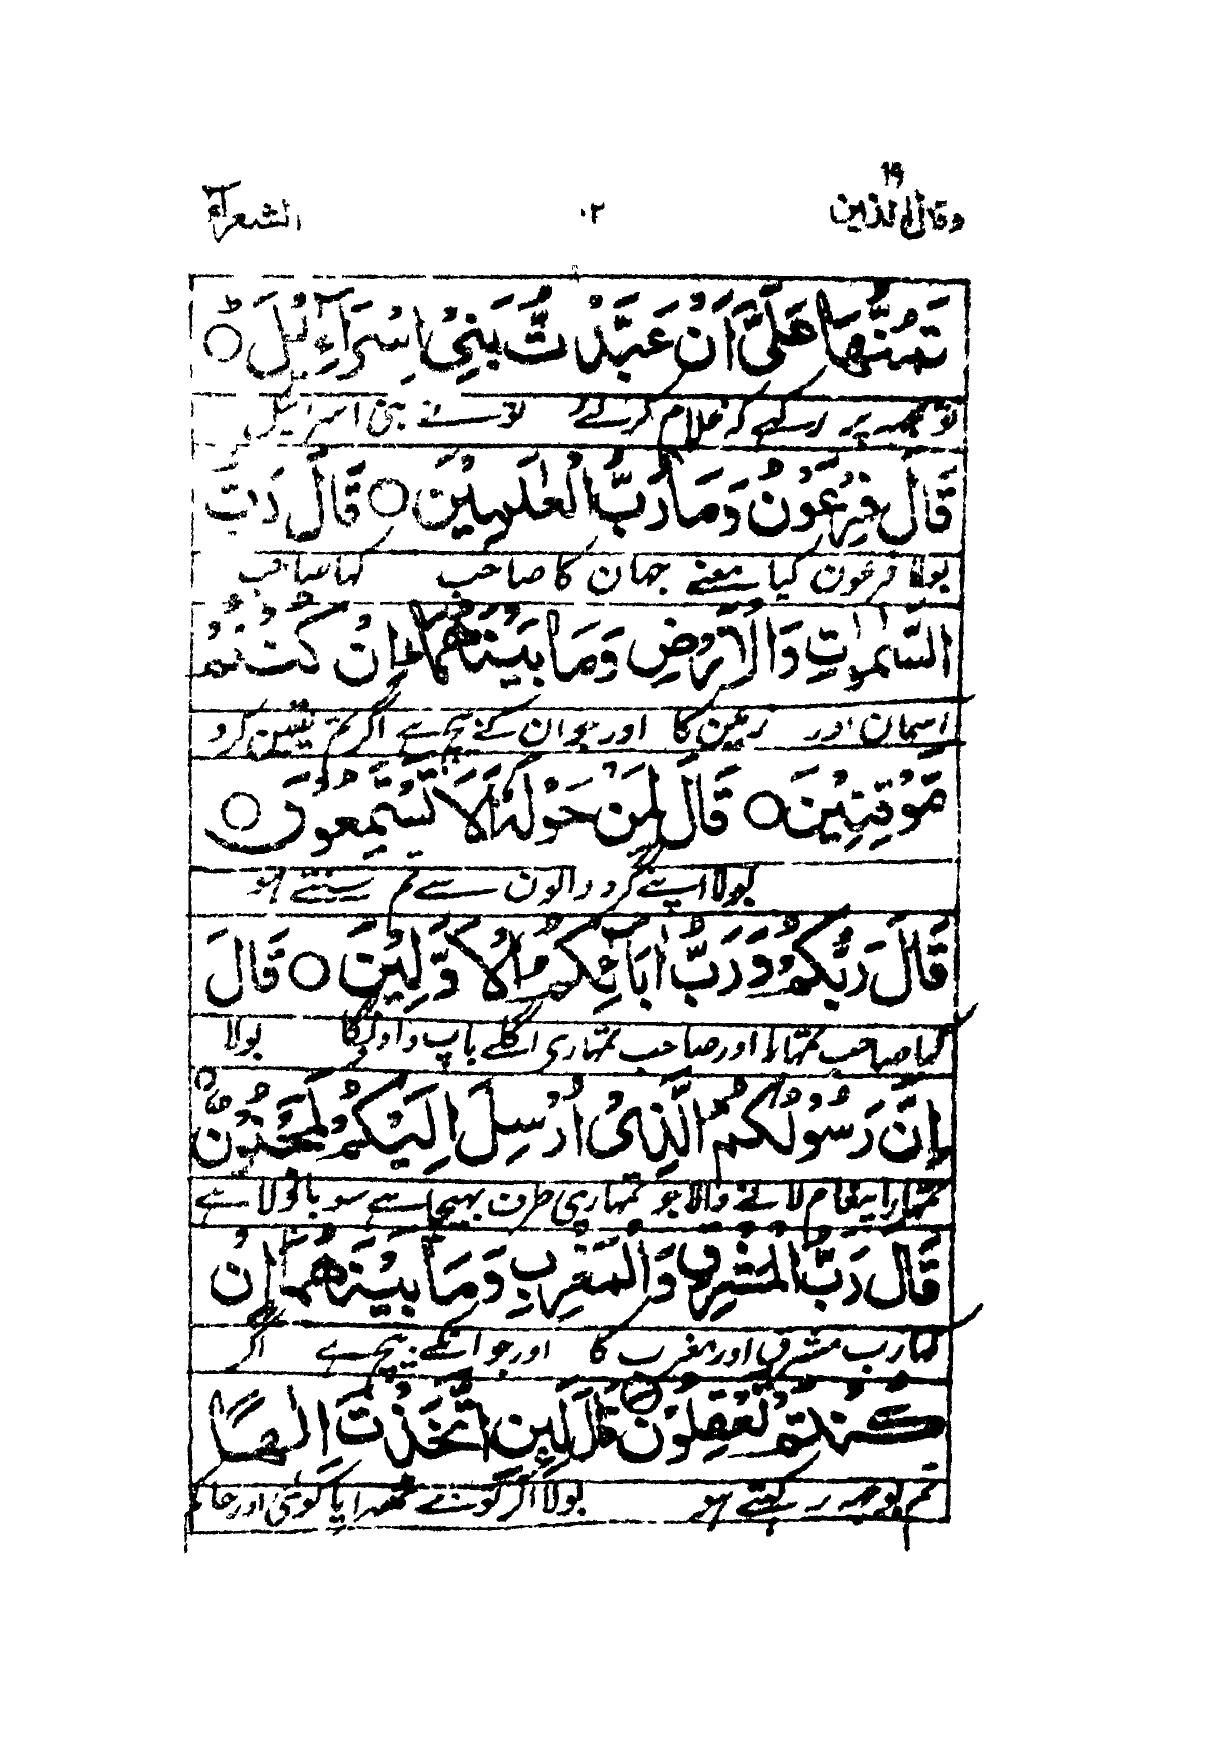 وقال الذین ۱۹ ۲۰ الشعرآء
تَمُنُّهَا عَلَيَّ اَنْ عَبَّدْتَّ بَنِيْ اِسْرَآءِيْلَ ○
تو مجھہ پر رکہے کہ غلام کر لئے تونے بنی اسرائیل
قَالَ فِرْعَوْنُ وَمَا رَبُّ الْعٰلَمِيْنَ ○ قَالَ رَبُّ
بولا فرعون کیا معنے جہان کا صاحب کہا صاحب
السَّمٰوٰتِ وَالْاَرْضِ وَمَا بَيْنَهُمَا اِنْ كُنْتُمْ
اسمان اور زمین کا اور جو ان کے بیچ ہے اگر تم یقین کرو
مُّوْقِنِيْنَ ○ قَالَ لِمَنْ حَوْلَهٗ اَلَا تَسْتَمِعُوْنَ ○
بولا اپنے گرد والون سے تم سنتے ہو
قَالَ رَبُّكُمْ وَرَبُّ اٰبَآئِكُمُ الْاَوَّلِيْنَ ○ قَالَ
کہا صاحب تمہارا اور صاحب تمہاری اگلے باپ دادونکا بولا
اِنَّ رَسُوْلَكُمُ الَّذِيْ اُرْسِلَ اِلَيْكُمْ لَمَجْنُوْنٌ ○
تمہارا پیغام لانے والا جو تمہاری طرف بھیجا ہے سو باولا ہے
قَالَ رَبُّ الْمَشْرِقِ وَالْمَغْرِبِ وَمَا بَيْنَهُمَا اِنْ
کہا رب مشرق اور مغرب کا اور جو انکے بیچ ہے اگر
كُنْتُمْ تَعْقِلُوْنَ ○ قَالَ لَئِنِ اتَّخَذْتَ اِلٰهًا
تم بوجہہ رکہتے ہو بولا اگر تونے ٹھہرایا کوئی اور حاکم